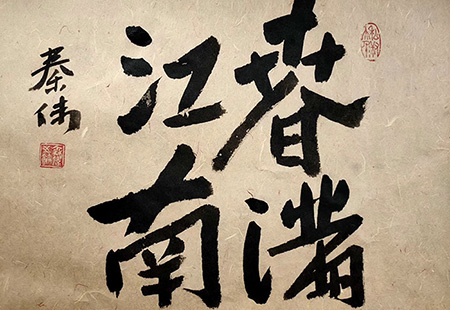 春满
江南
秦伟